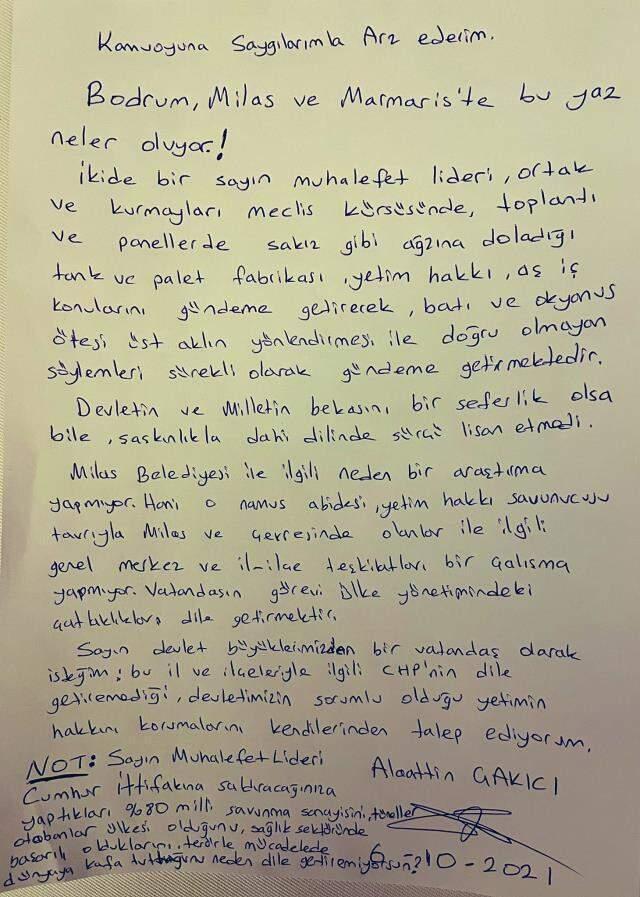 Kamuoyuna Saygılarımla Arz ederim.
Bodrum, Milas ve Marmaris'te bu yaz
neler oluyor.!
İkide bir sayın muhalefet lideri, ortak
ve kurmayları meclis kürsüsünde, toplantı
ve panellerde sakız gibi ağzına doladığı
tank ve palet fabrikası, yetim hakkı, aş iç
konularını gündeme getirecek, batı ve okyanus
ötesi üst aklın yönlendirmesi ile doğru olmayan
söylemleri sürekli olarak gündeme getirmektedir.
Devletin ve Milletin bekasını bir seferlik olsa
bile, şaskınlıkla dahi dilinde sürçü lisan etmedi.
Milas Belediyesi ile ilgili neden bir araştırma
yapmıyor. Hani o namus abidesi, yetim hakkı savunucusu
tavrıyla Milas ve çevresinde olanlar ile ilgili
genel merkez ve il-ilçe teşkilatları bir çalışma
yapmıyor. Vatandaşın görevi ülke yönetimindeki
çatlaklıkları dile getirmektir.
Sayın devlet büyüklerimizden bir vatandaş olarak
isteğim; bu il ve ilçeleriyle ilgili CHP'nin dile
getiremediği, devletimizin sorumlu olduğu yetimin
hakkını korumalarını kendilerinden talep ediyorum.
NOT: Sayın Muhalefet Lideri
Alaattin ÇAKICI
Cumhur İttifakına saldıracağınıza
yaptıkları %80 milli savunma sanayisini, tüneller
otobanlar ülkesi olduğunu, sağlık sektöründe
başarılı olduklarını, terörle mücadelede
dünyaya kafa tuttuğunu neden dile getiremiyorsun?
6-10-2021